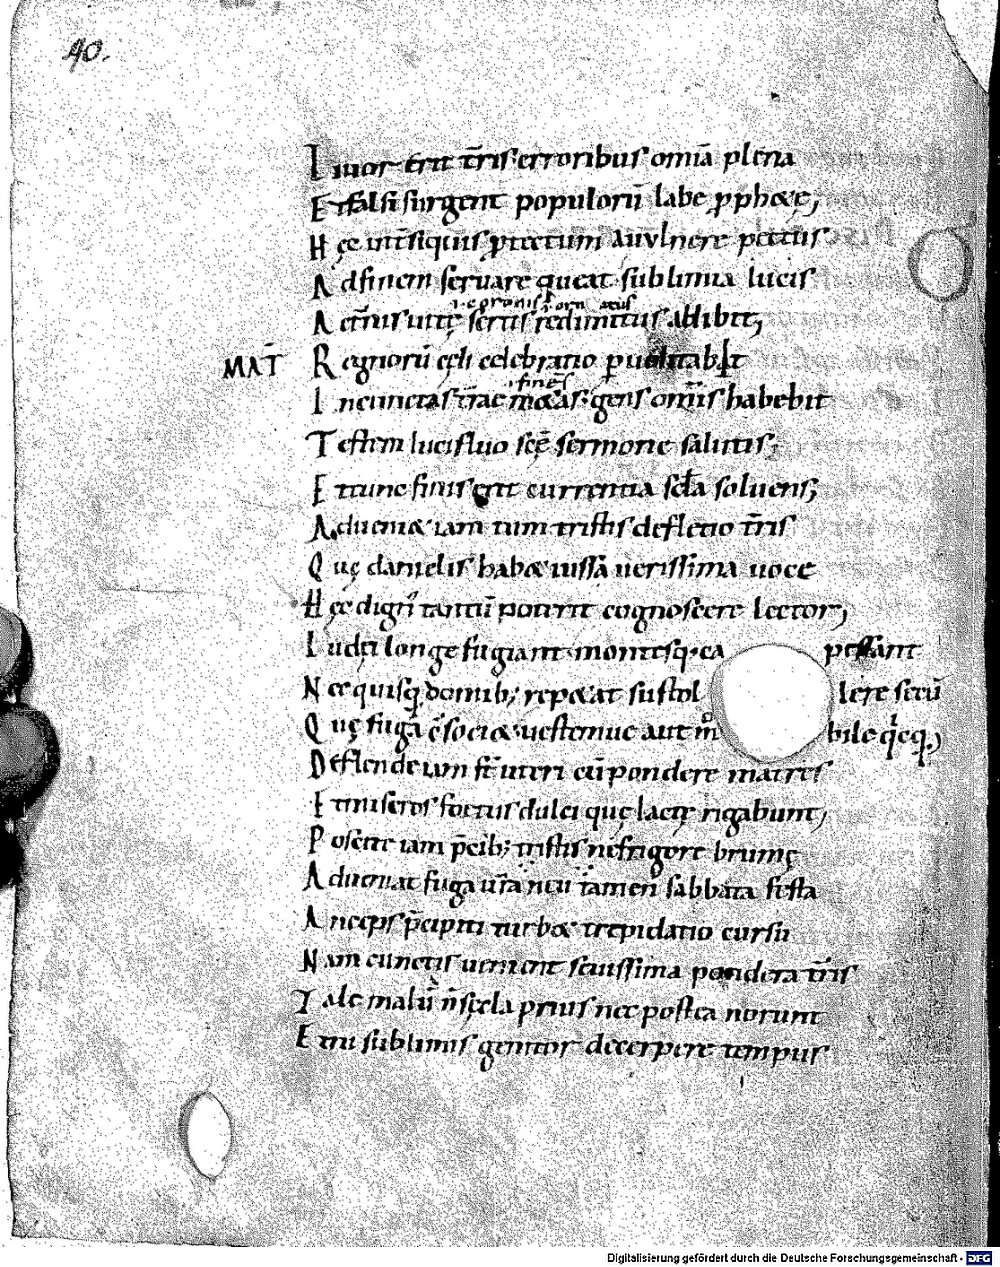 40.
Liuor erit t̄ris erroribus omīa plena
Et falsi surgent populorū labe ꝓphetę;
Hęc int̄ siquis ptectum auulnere pectus
Adfinem seruare queat sublimia lucis
.i. coronis ł orn atus
Aet̄nis uitę sertis redimitus adibit;
MAT̄ Regnorū cęli celebratio puolitabit
.i. fines
Incunctas t̄rae metas; gens om̄is habebit
Testem lucifluo scę̄ sermone salutis;
Et tunc finis erit currentia scła soluens;
Adueniet iam tum tristis defletio t̄ris
Quę danielis habet iussā uerissima uoce
Hęc digni tantū poterit cognoscere lector;
Iudei longe fugiant montesq; ca pessant
Nec quisq; domib; repetat sustol lere secū
Quę fuga c̄ socia & uestemue aut m bile qicq;
Deflende iam st̄ uteri cū pondere matres
Et miseros foetus dulci quę lacte rigabunt;
Poscite iam p̄cib; tristis ne frigore brumę
Adueniat fuga ur̄a neu tamen sabbata festa
Anceps p̄cipiti turbet trepidatio cursu
Nam cunctis uenient seuissima pondera t̄ris
Tale malū n̄ sęcla prius nec postea norunt
Et ni sublimis genitor decerpere tempus
Digitalisierung gefördert durch die Deutsche Forschungsgemeinschaft - DFG